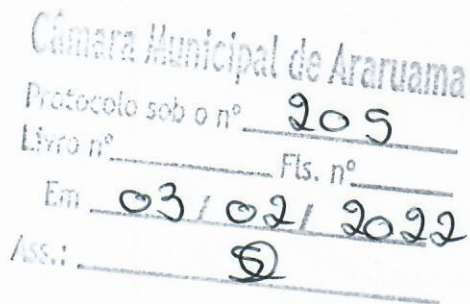 Câmara Municipal de Araruama
Protocolo sob o nº 205
Livro nº Fls. nº
Em 03 / 02 / 2022
Ass.: